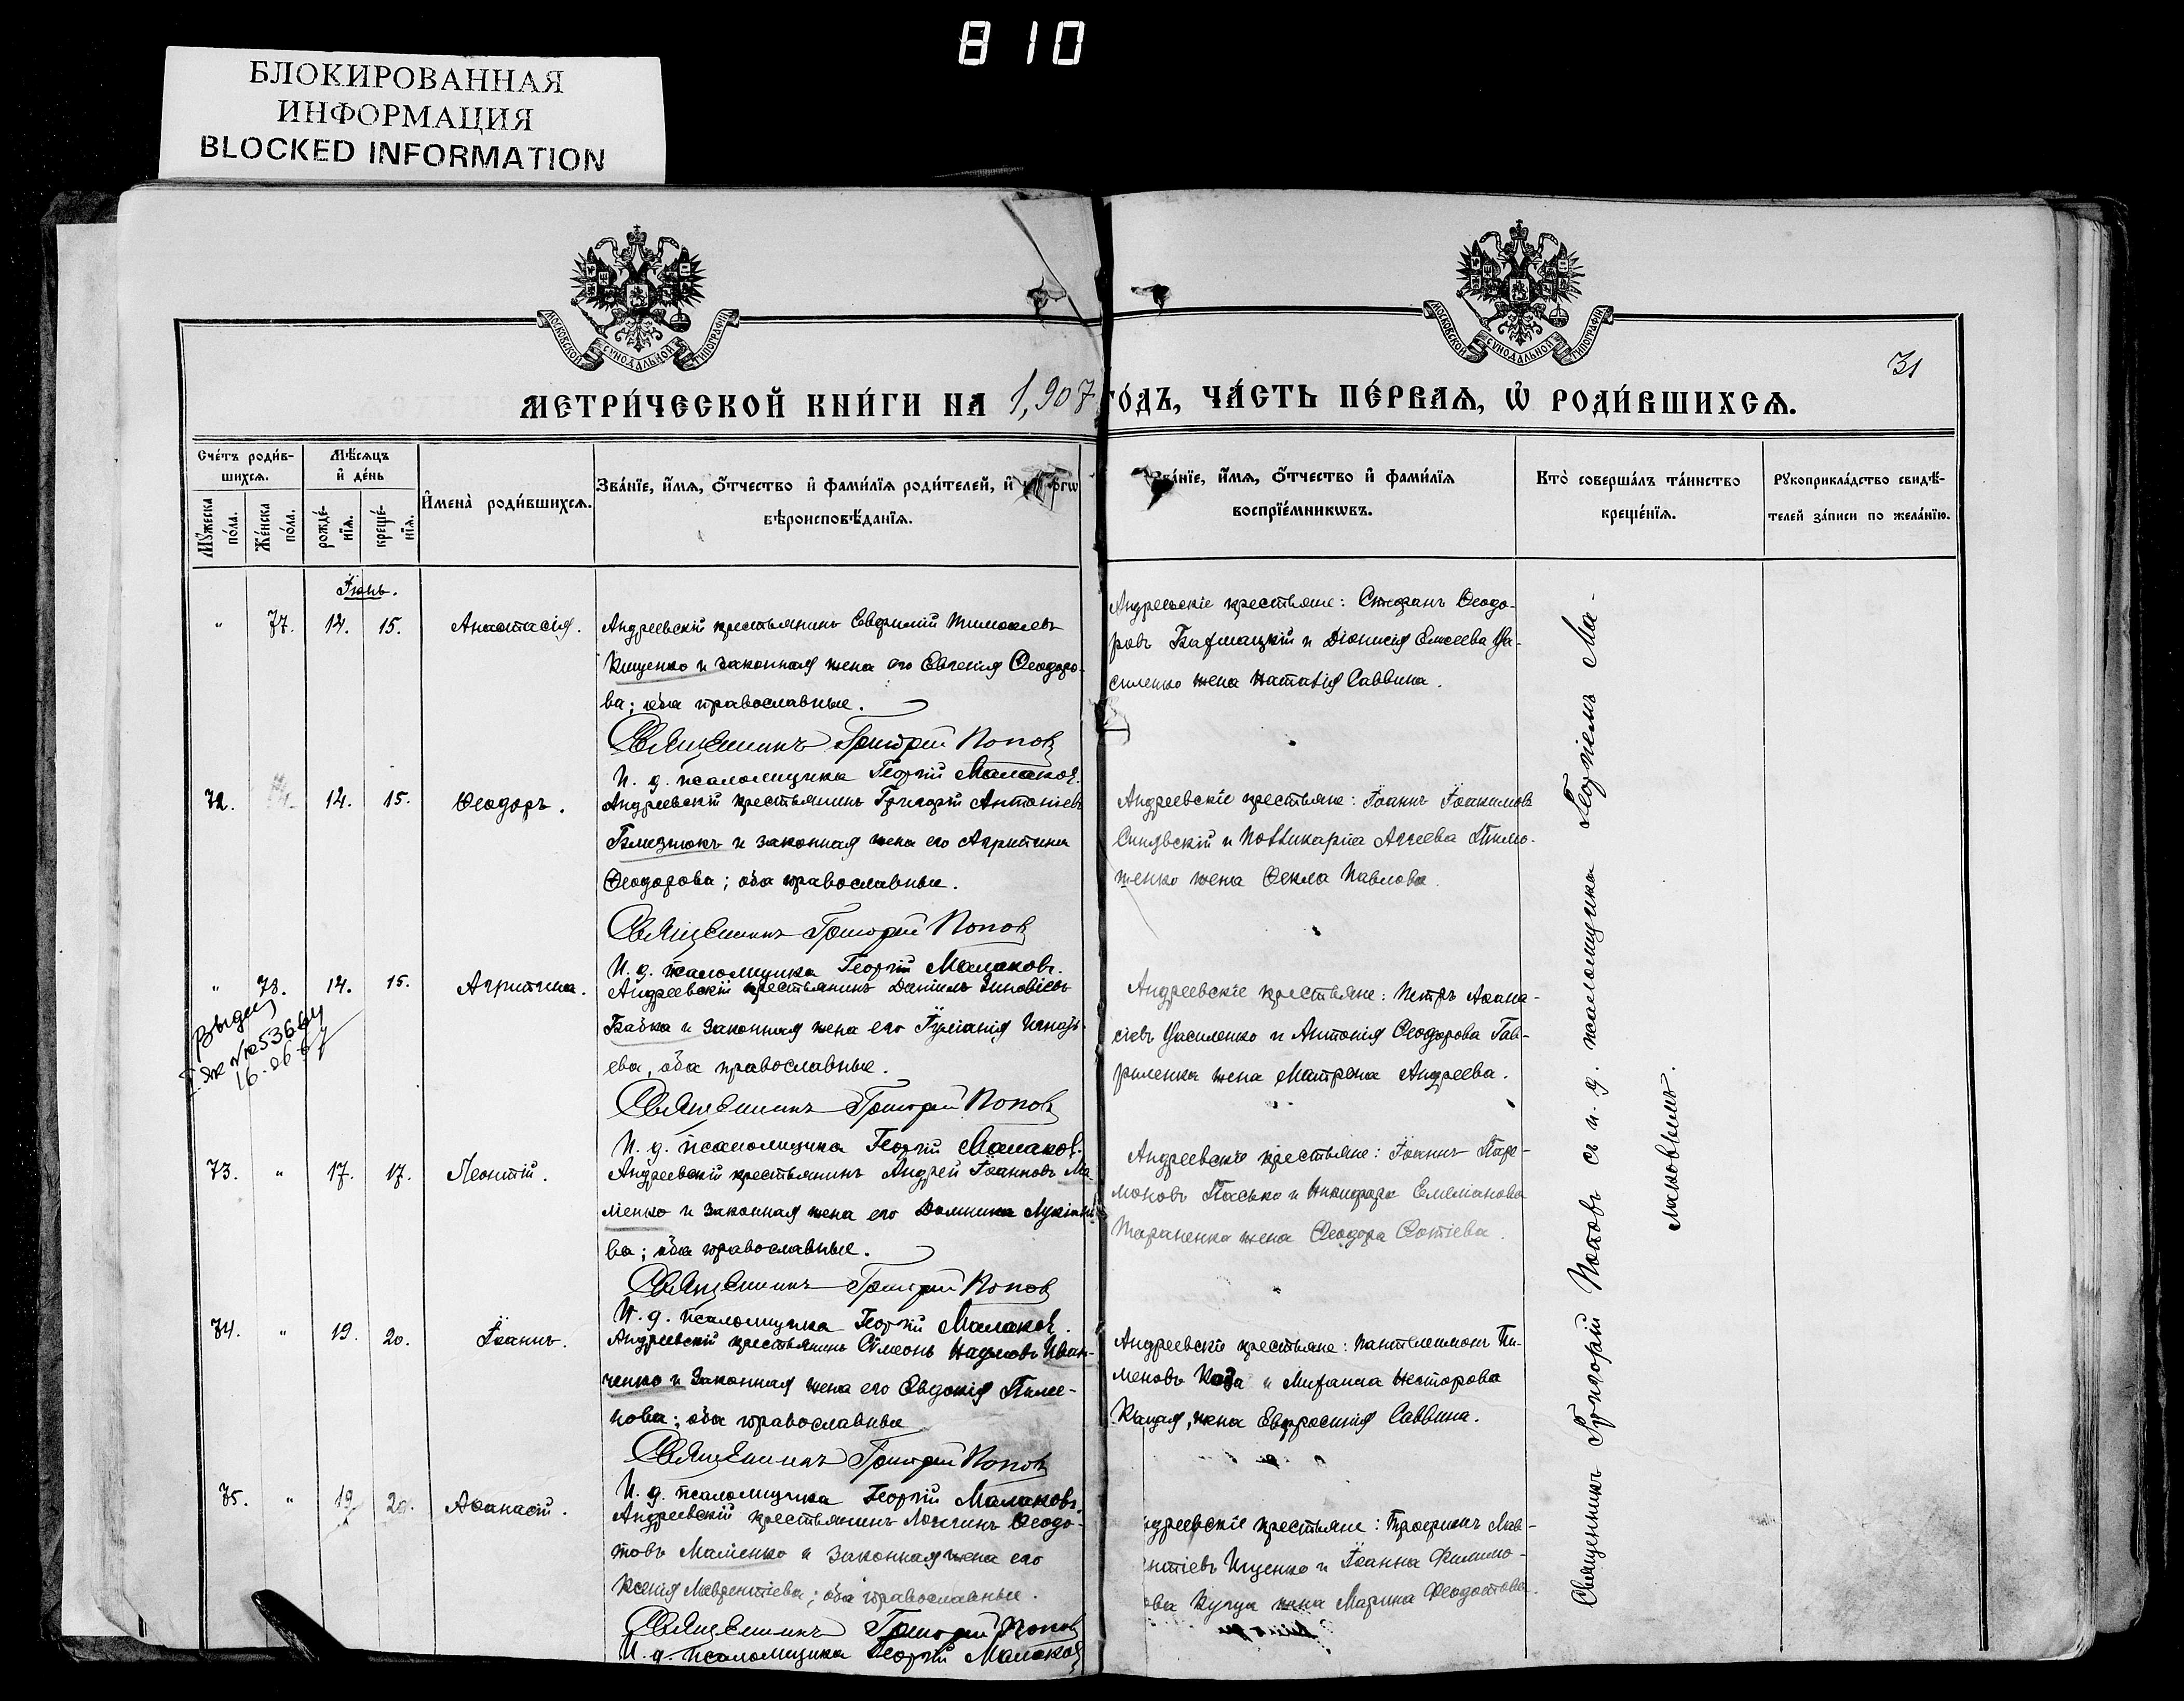 810
БЛОКИРОВАННАЯ
ИНФОРМАЦИЯ
BLOCKED INFORMATION
МОСКОВСКОЙ СѴНОДАЛЬНОЙ ТИПОГРАФІИ
МОСКОВСКОЙ СѴНОДАЛЬНОЙ ТИПОГРАФІИ
31
МЕТРИ́ЧЕСКОЙ КНИ́ГИ НА 1,907 ГО́ДЪ, ЧА́СТЬ ПЕ́РВАѦ, Ѡ҆ РОДИ́ВШИХСѦ.
Сче́тъ роди́в-
шихсѧ.
Мꙋ́жеска по́ла.
Же́нска по́ла.
Мѣ́сѧцъ
и҆ де́нь
рожде́-
нїѧ.
креще́-
нїѧ.
И҆мена̀ роди́вшихсѧ.
Зва́нїе, и҆́мѧ, ѻ҆́тчество и҆ фами́лїѧ роди́телей, и҆
вѣроисповѣ́данїѧ.
Зва́нїе, и҆́мѧ, ѻ҆́тчество и҆ фами́лїѧ
воспрїе́мникѡвъ.
Кто̀ соверша́лъ та́инство
креще́нїѧ.
Рꙋкоприкла́дство свидѣ́-
телей за́писи по жела́нїю.
Іюнь.
" 77. 14. 15. Анастасія.
Андреевскій крестьянинъ Евфимій Тимоѳеевъ
Кищенко и законная жена его Евгенія Ѳеодоро-
ва; оба православные.
Священникъ Григорій Попов
И. д. псаломщика Георгій Малаков.
Андреевскіе крестьяне: Стефанъ Ѳеодо-
ровъ и Діонисія Елисеева Уса-
силенко жена Наталія Саввина.
72. 14. 15. Ѳеодоръ.
Андреевскій крестьянинъ Григорій Антоніевъ
Близнюкъ и законная жена его Агриппина
Ѳеодорова; оба православные.
Священникъ Григорій Попов
И. д. псаломщика Георгій Малаковъ.
Андреевскіе крестьяне: Іоаннъ Іоакимовъ
Синявскій и Поликарпа Агѳеева Тимо-
шенко жена Ѳекла Павлова.
" 78. 14. 15. Агриппина.
Выдан
16-06-67
Андреевскій крестьянинъ Даніилъ Зиновіевъ
Бабка и законная жена его Іуліанія Игнать-
ева, оба православные.
Священникъ Григорій Попов
И. д. псаломщика Георгій Малаков.
Андреевскіе крестьяне: Петръ Аѳана-
сіевъ Усиленко и Антонія Ѳеодорова Гав-
риленка жена Матрона Андреева.
73. " 17. 17. Леонтій.
Андреевскій крестьянинъ Андрей Іоанновъ Ма-
ліенко и законная жена его Домника Лукіано-
ва; оба православные.
Священникъ Григорій Попов
И. д. псаломщика Георгій Малаков.
Андреевскіе крестьяне: Іоаннъ Паре-
моновъ Пасько и Никифора Емеліанова
Тараненка жена Ѳеодора Ѳотіева.
74. " 19. 20. Іоаннъ.
Андреевскій крестьянинъ Сѵмеонъ Наумовъ Иван-
ченко и законная жена его Евдокія Пиме-
нова; оба православные
Священникъ Григорій Попов
И. д. псаломщика Георгій Малаковъ.
Андреевскіе крестьяне: Пантелеимонъ Пи-
меновъ Коза и Михаила Несторова
Кацая, жена Евфросинія Саввина.
75. " 19. 20. Аѳанасій.
Андреевскій крестьянинъ Логгинъ Ѳеодо-
товъ Маліенко и законная жена его
Ксенія Лаврентіева; оба православные.
Священникъ Григорій Попов
И. д. псаломщика Георгій Малаков
Андреевскіе крестьяне: Трофимъ Лав-
рентіевъ Ищенко и Іоанна Филимо-
нова Куцуа жена Марина Ѳеодотова.
Священникъ Григорій Поповъ съ и. д. псаломщика Георгіемъ Ма-
лаковымъ.